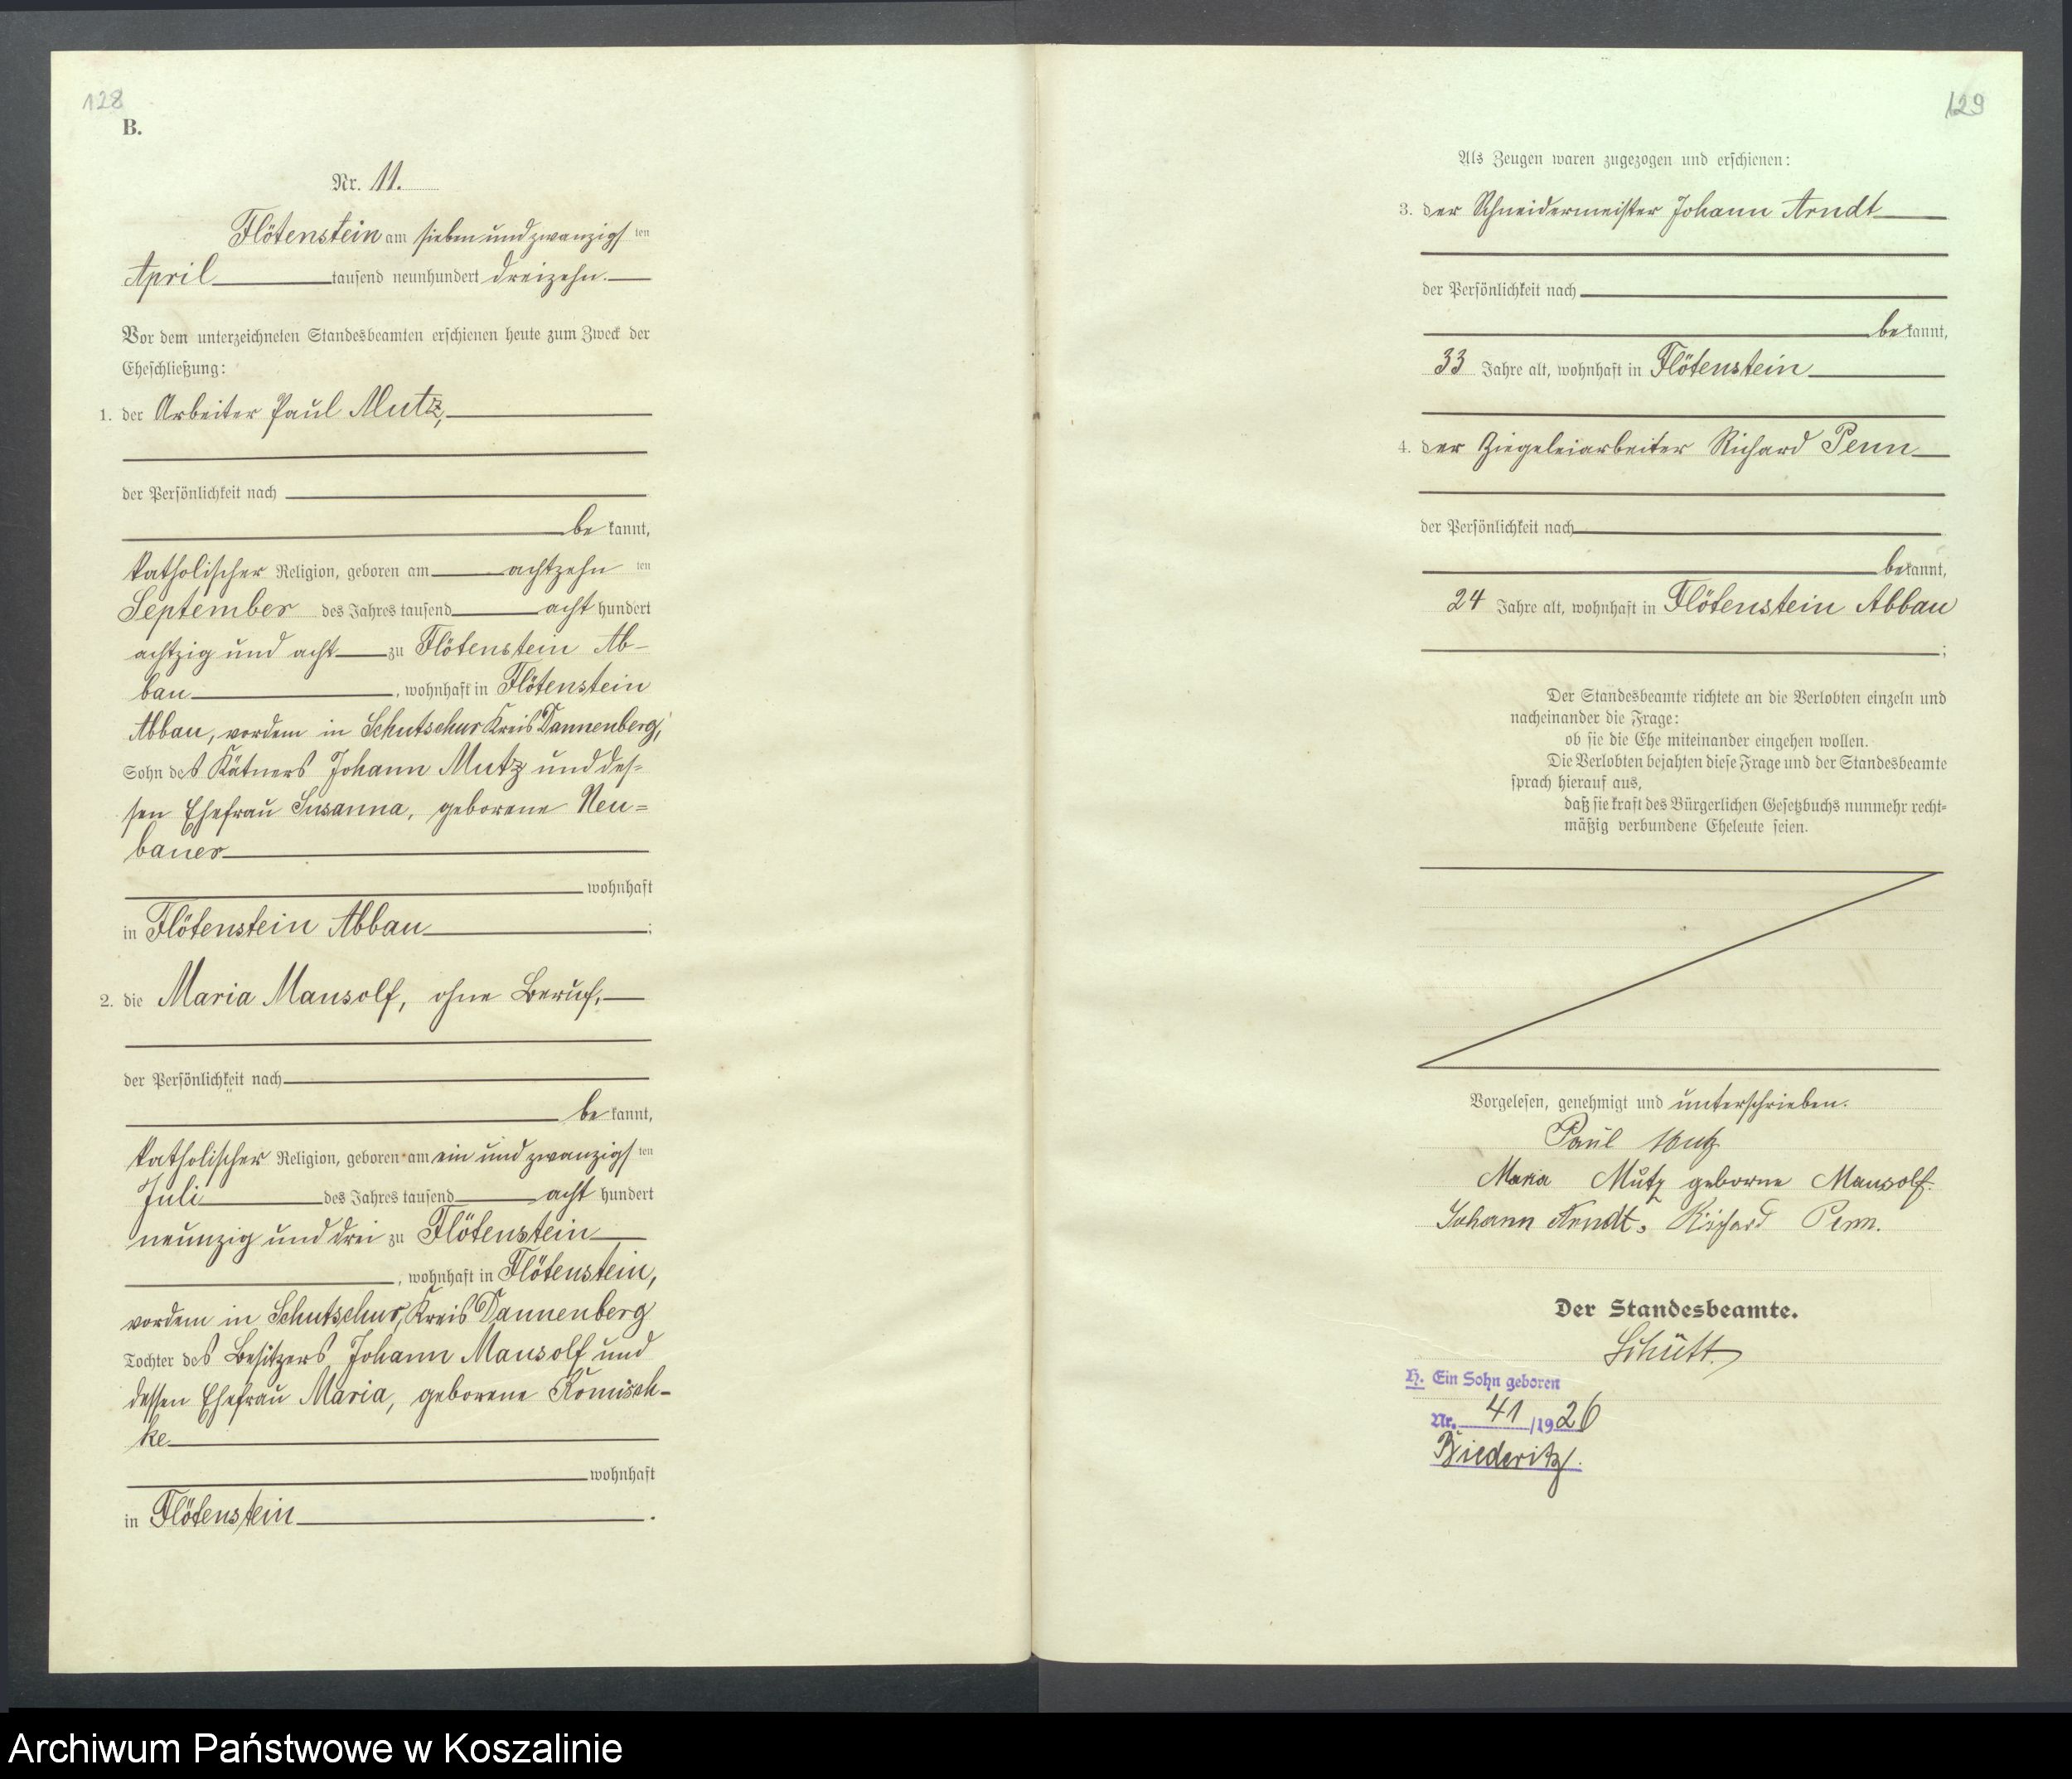 128
B.
Nr. 11.
Flötenstein am siebenundzwanzigsten
April tausend neunhundert dreizehn.
Vor dem unterzeichneten Standesbeamten erschienen heute zum Zweck der
Eheschließung:
1. der Arbeiter Paul Mutz,
der Persönlichkeit nach
bekannt,
katholischer Religion, geboren am achtzehnten
September des Jahres tausend acht hundert
achtzig und acht zu Flötenstein Ab-
bau, wohnhaft in Flötenstein
Abbau, vordem in Schutschur Kreis Dannenberg,
Sohn des Kätners Johann Mutz und des=
sen Ehefrau Susanna, geborene Neu=
bauer
wohnhaft
in Flötenstein Abbau;
2. die Maria Mausolf, ohne Beruf,
der Persönlichkeit nach
bekannt,
katholischer Religion, geboren am ein und zwanzigsten
Juli des Jahres tausend acht hundert
neunzig und drei zu Flötenstein
, wohnhaft in Flötenstein,
vordem in Schutschur, Kreis Dannenberg
Tochter des Besitzers Johann Mausolf und
dessen Ehefrau Maria, geborene Römisch-
ke
wohnhaft
in Flötenstein.
129
Als Zeugen waren zugezogen und erschienen:
3. der Schneidermeister Johann Arndt
der Persönlichkeit nach
bekannt,
33 Jahre alt, wohnhaft in Flötenstein
4. der Ziegeleiarbeiter Richard Penn
der Persönlichkeit nach
bekannt,
24 Jahre alt, wohnhaft in Flötenstein Abbau
;
Der Standesbeamte richtete an die Verlobten einzeln und
nacheinander die Frage:
ob sie die Ehe miteinander eingehen wollen.
Die Verlobten bejahten diese Frage und der Standesbeamte
sprach hierauf aus,
daß sie kraft des Bürgerlichen Gesetzbuchs nunmehr recht=
mäßig verbundene Eheleute seien.
Vorgelesen, genehmigt und unterschrieben.
Paul Mutz
Maria Mutz geborne Mausolf.
Johann Arndt, Richard Penn.
Der Standesbeamte.
Schütt.
H. Ein Sohn geboren
Nr. 41/1926
Biederitz.
Archiwum Państwowe w Koszalinie